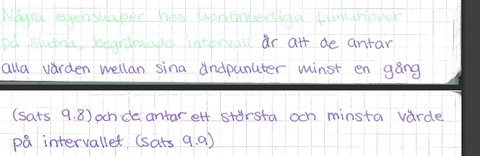 Några egenskaper hos kontinuerliga funktioner
på slutna, begränsade intervall är att de antar
alla värden mellan sina ändpunkter minst en gång
(sats 9.8) och de antar ett största och minsta värde
på intervallet. (sats 9.9)